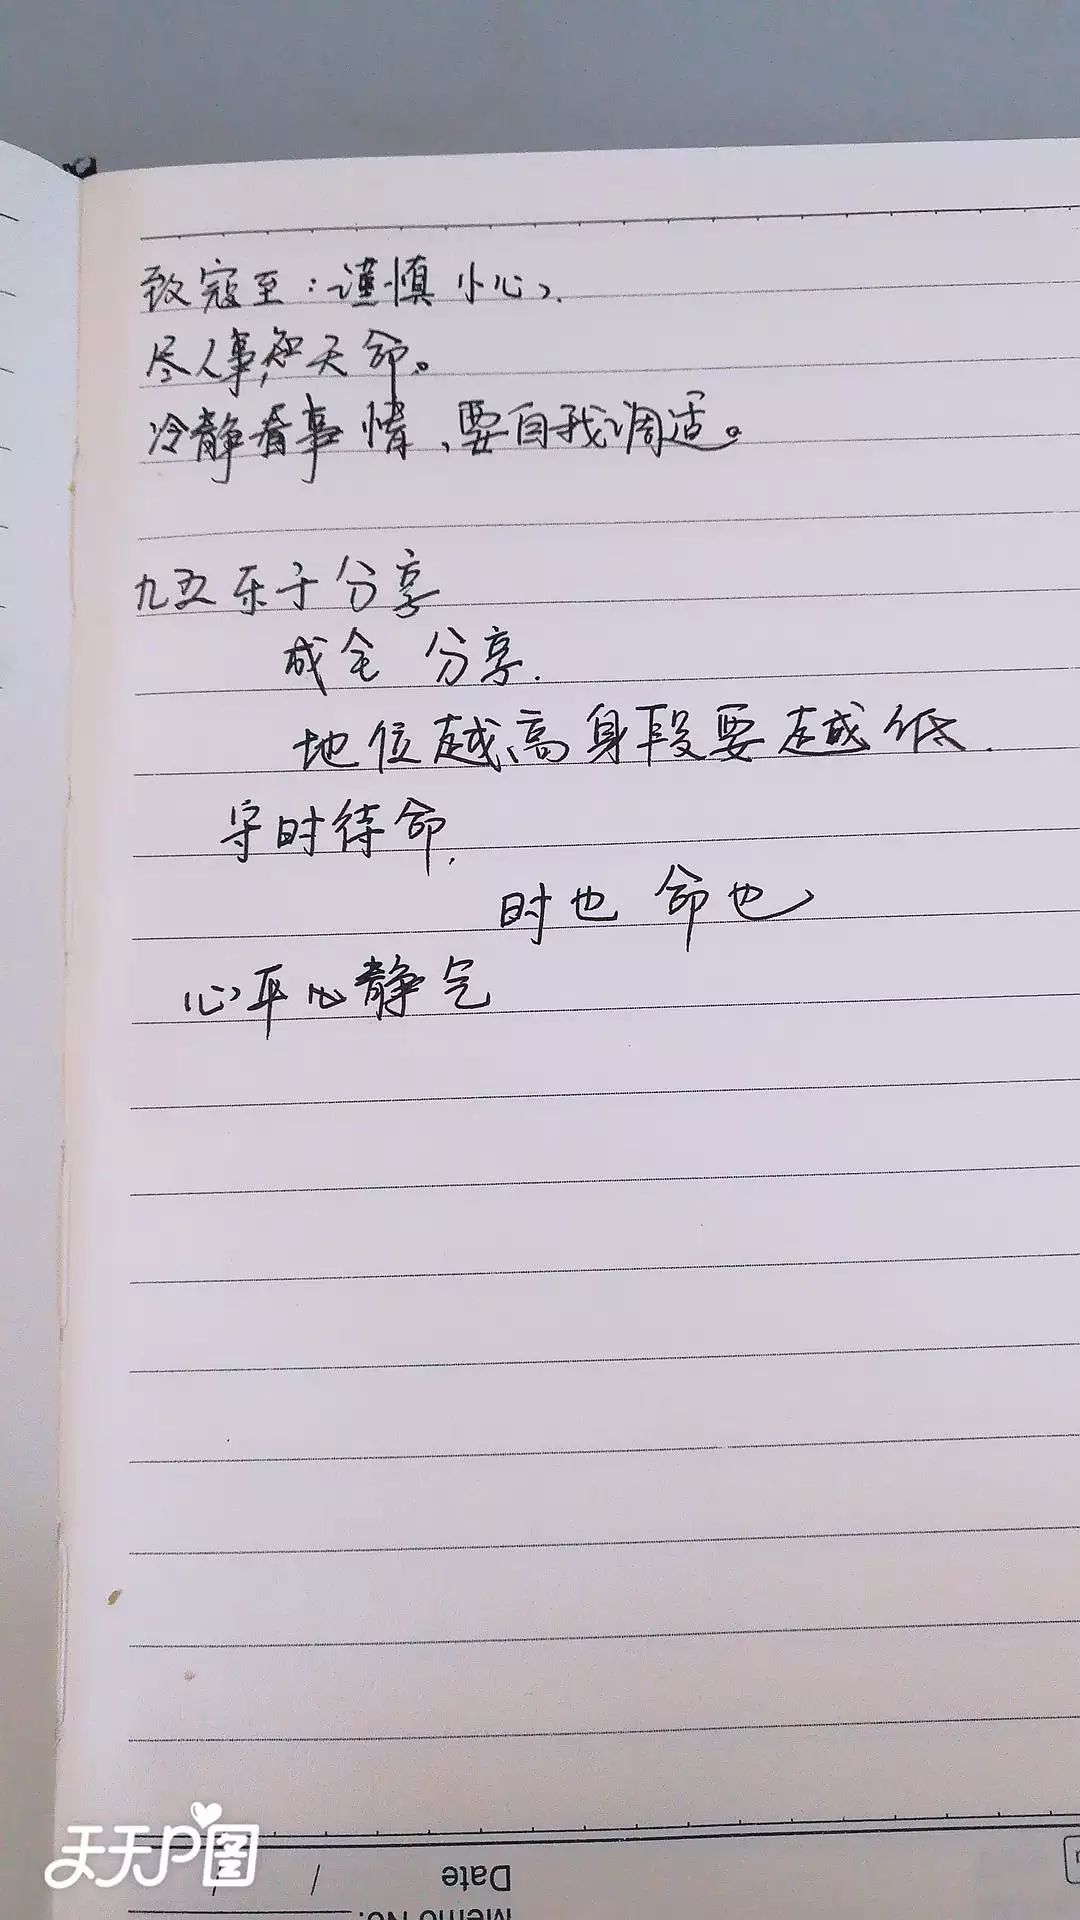 致寇至：谨慎小心.
尽人事,知天命。
冷静看事情、要自我调适。
九五乐于分享
成全 分享.
地位越高身段要越低.
守时待命.
时也 命也
心平心静气
天天P图
Date
Memo No: